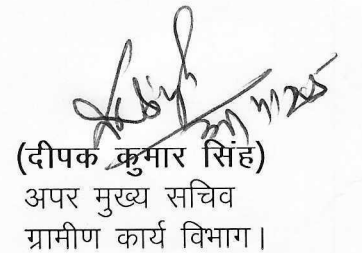 (दीपक कुमार सिंह)
अपर मुख्य सचिव
ग्रामीण कार्य विभाग।